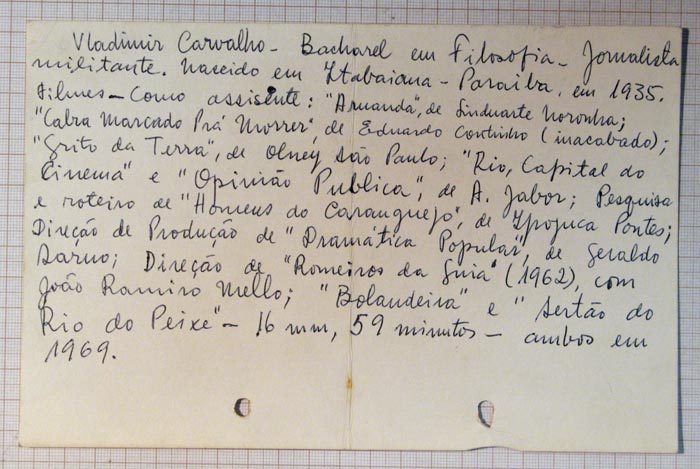 Vladimir Carvalho - Bacharel em Filosofia - Jornalista
militante. Nascido em Itabaiana - Paraiba, em 1935.
Filmes - Como assistente: "Aruanda", de Linduarte Noronha;
"Cabra Marcado Prá Morrer", de Eduardo Coutinho (inacabado);
"Grito da Terra", de Olney São Paulo; "Rio, Capital do
Cinema" e "Opinião Publica", de A. Jabor; Pesquisa
e roteiro de "Homens do Caranguejo", de Ipojuca Pontes;
Direção de Produção de "Dramática Popular", de Geraldo
Sarno; Direção de "Romeiros da Guia" (1962), com
João Ramiro Mello; "Bolandeira" e "Sertão do
Rio do Peixe" - 16 mm, 59 minutos - ambos em
1969.